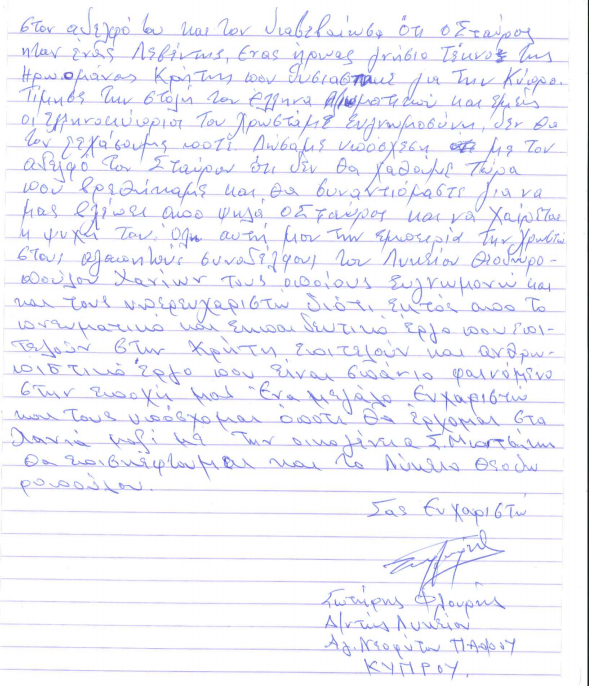 στον αδελφό του και τον διαβεβαίωσα ότι ο Σταύρος
ήταν ένας Λεβέντης, ένας ήρωας γνήσιο Τέκνο της
Ηρωομάνας Κρήτης που θυσιάστηκε για την Κύπρο.
Τίμησε την στολή του Έλληνα και εμείς
οι Ελληνοκύπριοι του χρωστάμε ευγνωμοσύνη, δεν θα
τον ξεχάσουμε ποτέ Δώσαμε υπόσχεση με τον
αδελφό του Σταύρου ότι δεν θα χαθούμε Τώρα
που βρεθήκαμε και θα συναντιόμαστε για να
μας βλέπει από ψηλά ο Σταύρος και να χαίρεται
η ψυχή του. Όλη αυτή μου την εμπειρία την χρωστώ
στους αγαπητούς συναδέλφους του Λυκείου Θεοδωρο-
πούλου Χανίων τους οποίους ευγνωμονώ και
και τους υπερευχαριστώ διότι εκτός από το
πνευματικό και εκπαιδευτικό έργο που επι-
τελούν στην Κρήτη επιτελούν και ανθρω-
πιστικό έργο που είναι σπάνιο φαινόμενο
στην εποχή μας Ένα μεγάλο Ευχαριστώ
και τους υπόσχομαι όποτε θα έρχομαι στα
Χανιά μαζί με την οικογένεια Σ.
θα επισκέφτομαι και το Λύκειο Θεοδω
ροπούλου.
Σας Ευχαριστώ
Σωτήρης Φλουρής
Δ/ντής Λυκείου
Αγ. Νεοφύτου ΠΑΦΟΥ
ΚΥΠΡΟΥ.